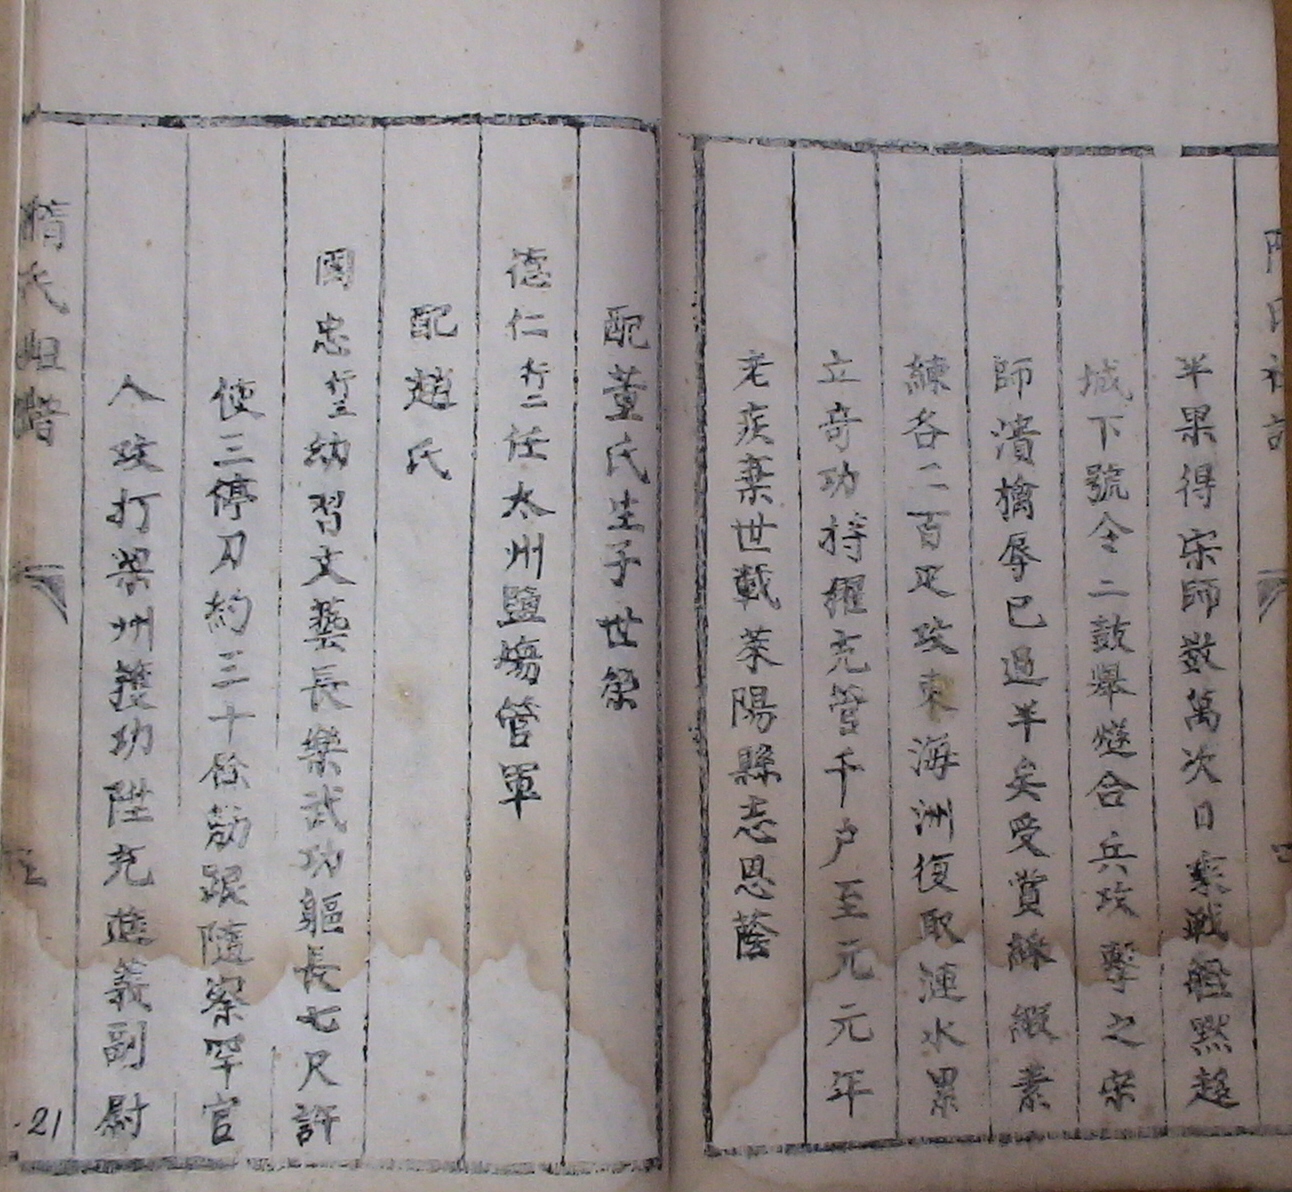 半果得宋師数萬次日乘戦艦黙趍
城下號令二鼓舉燧合兵攻擊之宋
師潰擒辱已過半矣受賞綵緞素
練各二百疋攻東海洲復取漣水累
立奇功特擢充管千户至元元年
老疾棄世載萊陽縣志恩蔭
配董氏生子世榮
德仁行二任太州鹽塲管軍
配趙氏
國忠行三幼習文藝長樂武功軀長七尺許
使三停刀約三十餘觔跟隨察罕官
人攻打梁州獲功陞充進義副尉
隋氏
21